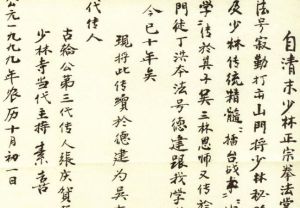 自清末少林正宗拳法堂
法号寂勤打击山门将少林秘
及少林传统精髓：擂台战
学传於其子吴三林恩师又传於
门徒丁洪本法号德建跟我学
今已十年矣
现将此传赞於德建为吴古
代传人
古轮公第三代传人张庆贺
少林寺当代主持素喜
公元一九九九年农历十月初一日